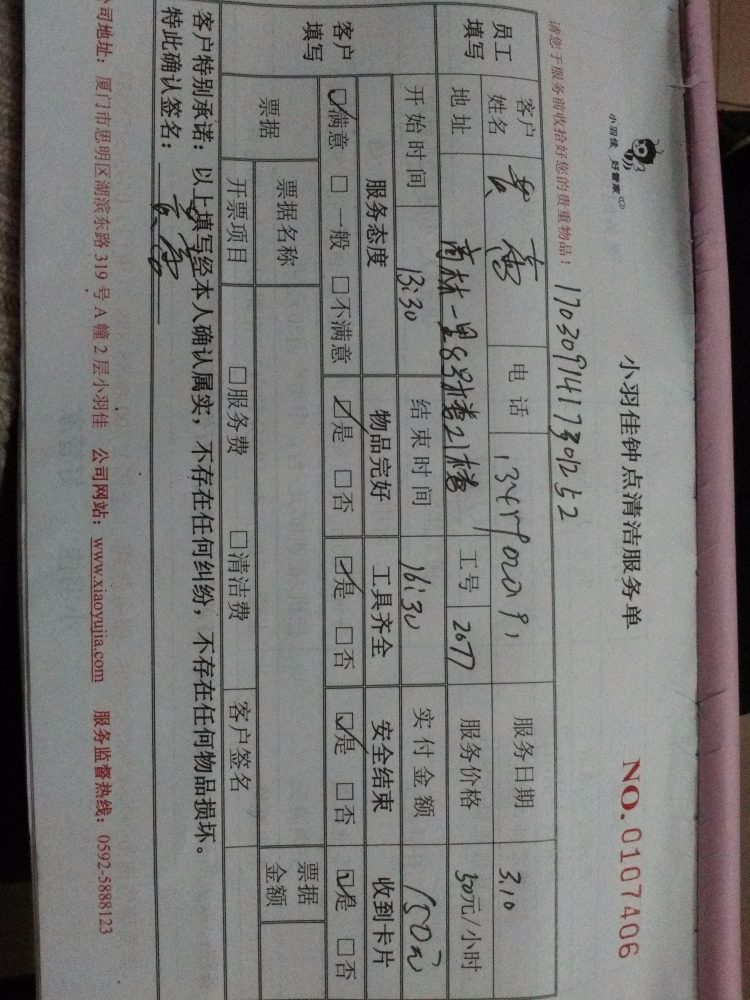 小羽佳 好管家
小羽佳钟点清洁服务单 NO.0107406
请您于服务前收拾好您的贵重物品！
员工填写 客户姓名 电话 服务日期 3.10
地址 工号 2077 服务价格 50元/小时
开始时间 13:30 结束时间 16:30 实付金额 150元
客户填写 服务态度 物品完好 工具齐全 安全结束 收到卡片
☑满意 □一般 □不满意 ☑是 □否 ☑是 □否 ☑是 □否 ☑是 □否
票据 票据名称 票据金额
开票项目 □服务费 □清洁费 客户签名
客户特别承诺：以上填写经本人确认属实，不存在任何纠纷，不存在任何物品损坏。
特此确认签名：
公司地址：厦门市思明区湖滨东路 319 号 A 幢 2 层小羽佳 公司网站：www.xiaoyujia.com 服务监督热线：0592-5888123